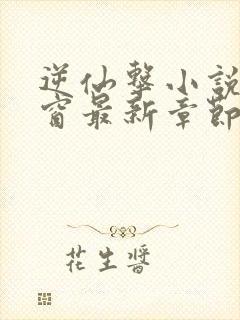 逆仙擊小說
窗最新章節
花生醬